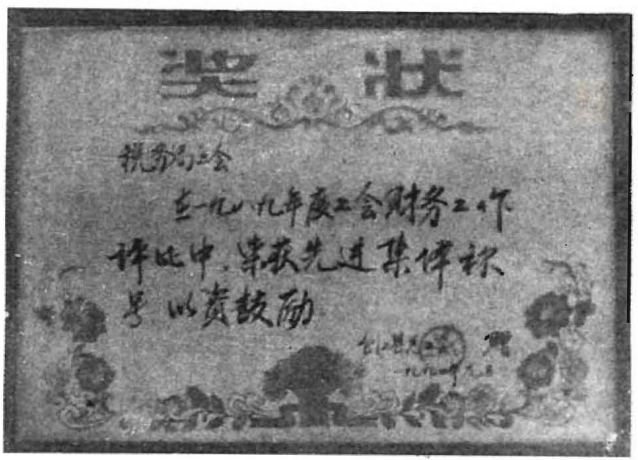 奖状
税务局工会
在一九八九年度工会财务工作
评比中,荣获先进集体称
号 以资鼓励
县总工会
一九九〇年